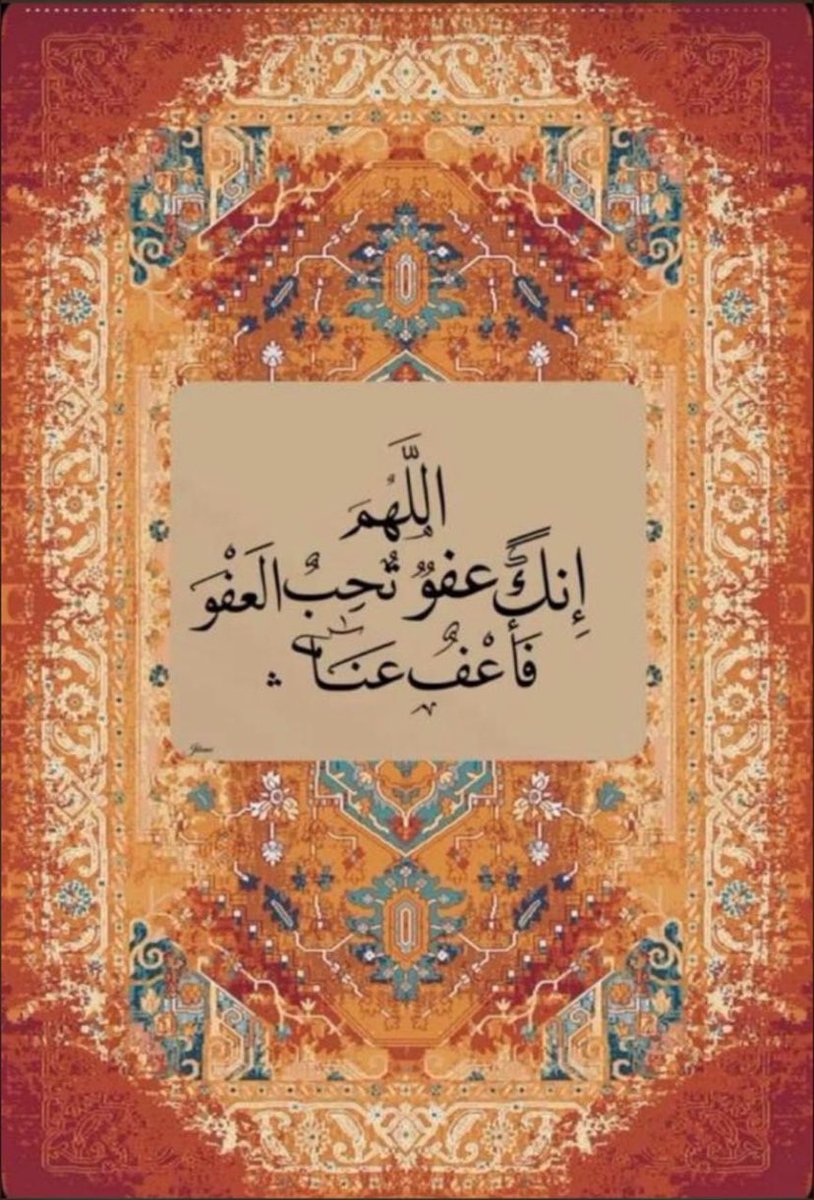 اللَّهُمَ
إِنكَ عفوٌ تُحِبُ العَفْوَ
فَأعْفُ عَنَا